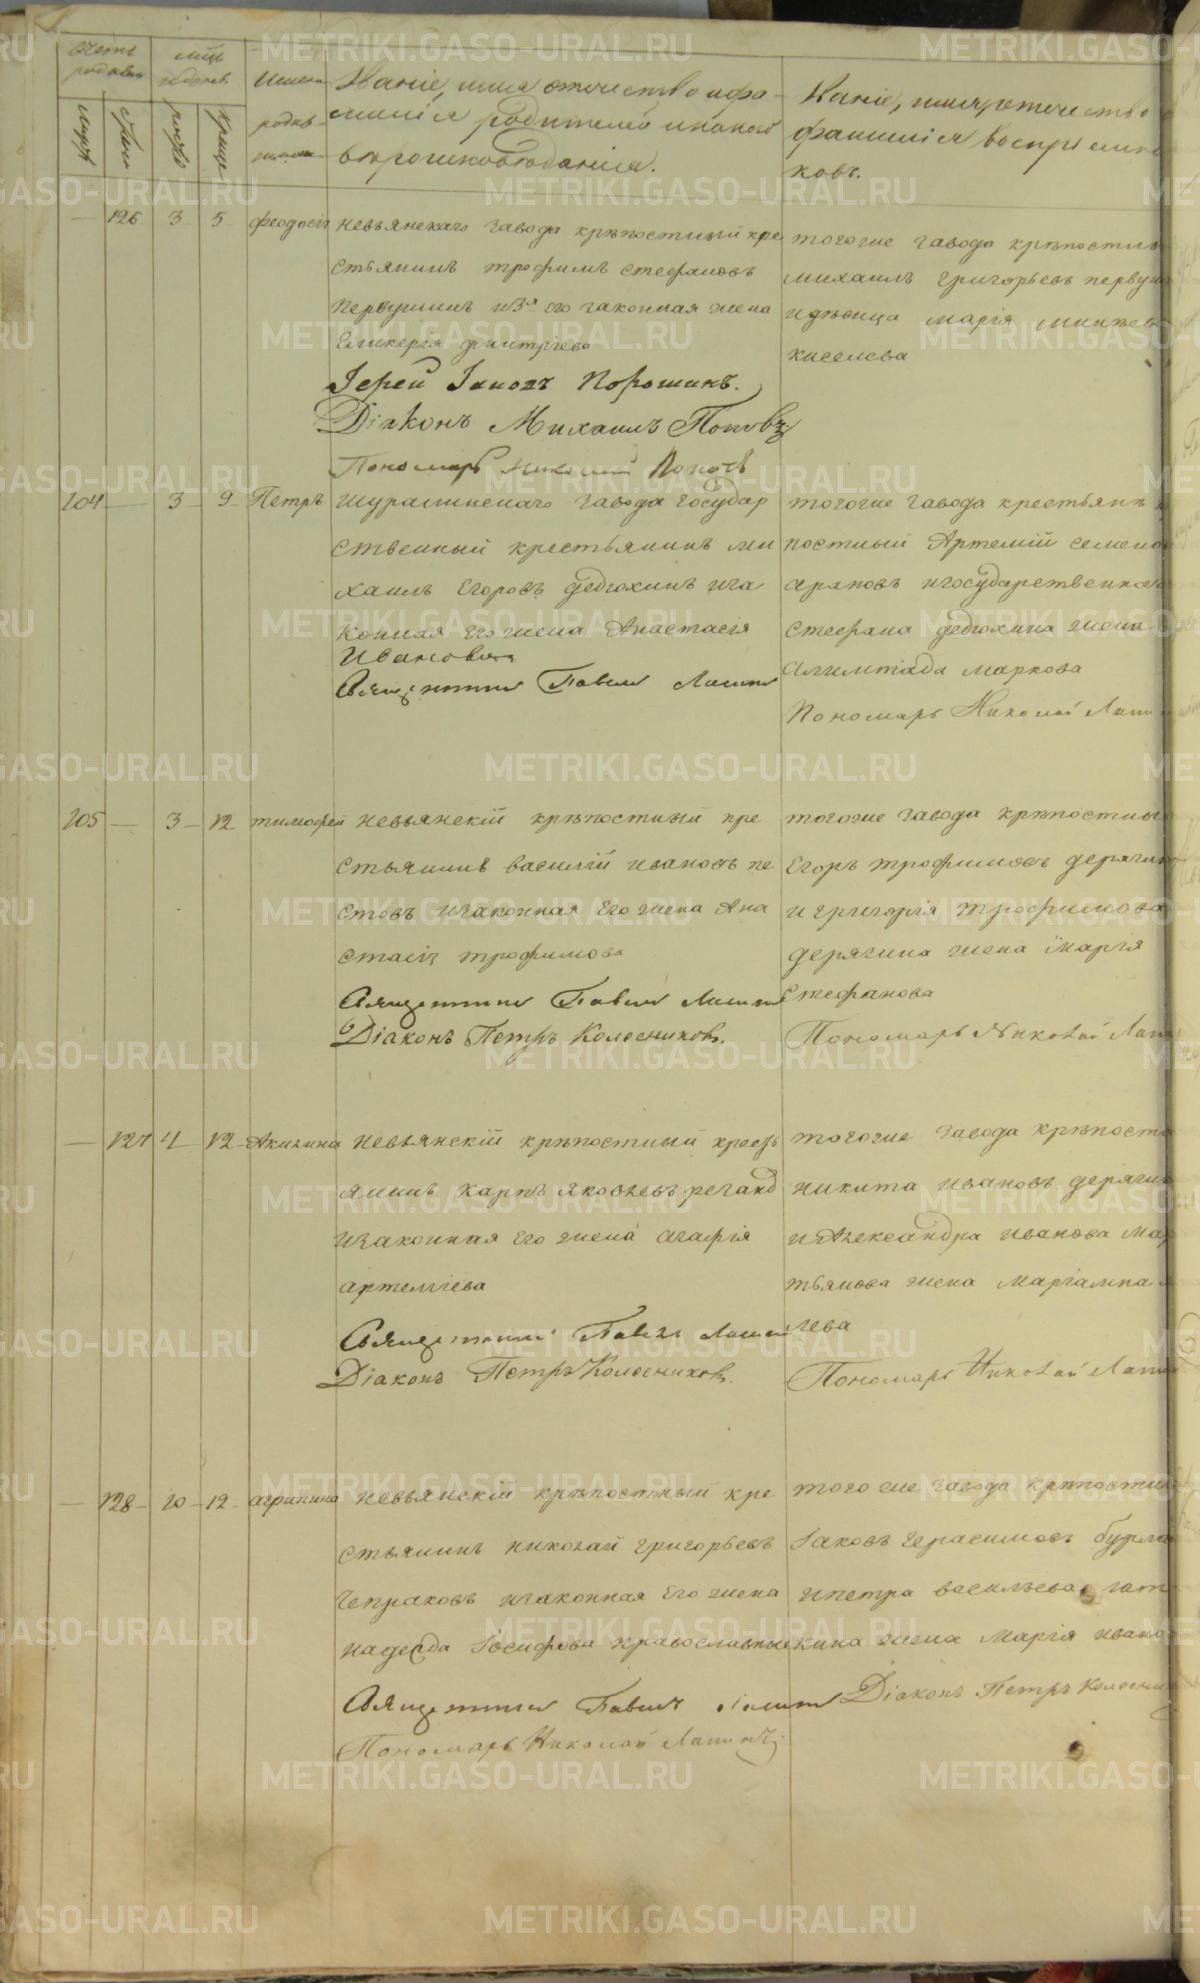 Счетъ родовшихся
Мѣсяцъ и день
Имена родившихся
Званіе, имя отечество и фа-
милія родителей и какого
вѣроисповѣданія.
Званіе, имя, отечество
фамилія воспріемни
ковъ.
126 3 5 Феодосія
невьянскаго завода крѣпостный кре
стьянинъ трофимъ стефановъ
Первушинъ и его законная жена
Гликерія дмитріева
Іерей Іаковъ Порошинъ.
Діаконъ Михаилъ Поповъ
Пономарь Николай Поповъ
тогоже завода крѣпостны
михаилъ григорьевъ перву
и дѣвица марія
киселева
104 3 9 Петръ
Шуралинскаго завода государ
ственный крестьянинъ ми
хаилъ Егоровъ дедюхинъ и за
конная его жена Анастасія
Ивановна
Священникъ Павелъ
тогоже завода крестьян
постный Артемій семено
и государственна
стефана дедюхина жена
маркова
Пономарь Николай Лапи
105 3 12 тимофей
невьянскій крѣпостный кре
стьянинъ василій ивановъ пе
стовъ и законная его жена Ана
стасія трофимова
Священникъ Павелъ
Діаконъ Петръ Колосниковъ.
тогоже завода крѣпостны
Егоръ трофимовъ дерягин
и григорія трофимова
дерягина жена марія
Стефанова
Пономарь Николай Лапи
127 4 12 Акилина
невьянскій крѣпостный кресть
янинъ карпъ яковлевъ
и законная его жена агафія
артеміева
Священникъ Павелъ
Діаконъ Петръ Колосниковъ.
тогоже завода крѣпостн
никита ивановъ дерягин
и Александра иванова мар
тьянова жена маріамна
лева
Пономарь Николай Лапи
128 10 12 агрипина
невьянскій крѣпостный кре
стьянинъ николай григорьевъ
Чепраковъ и законная его жена
надежда Іосифова православные
Священникъ Павелъ
Пономарь Николай Лапинъ
того же завода крѣпостны
Іаковъ герасимовъ бурла
и петра васильева
кина жена марія ивано
Діаконъ Петръ Колосни
METRIKI.GASO-URAL.RU